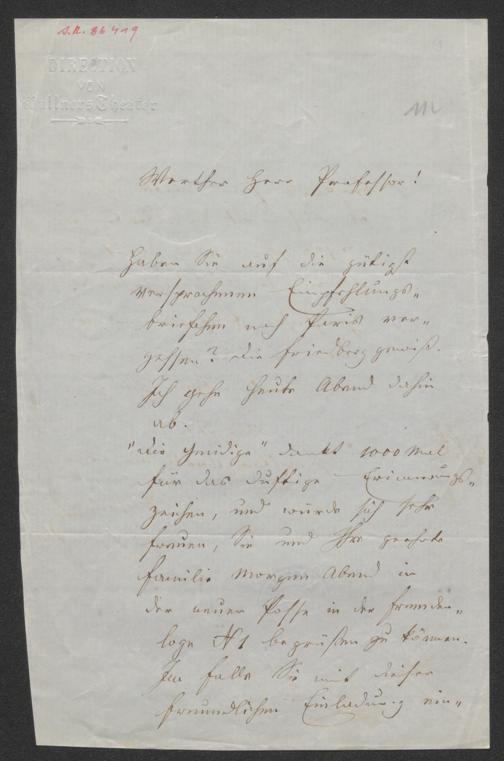 S.R. 86419
DIRECTION
VON
Wallners Theater
Werther Herr Professor!
Haben Sie auf die gütigst
versprochenen Empfehlungs-
briefchen nach Paris ver-
gessen? Die Friedberg gewiß.
Ich gehe heute Abend dahin
ab.
"Die Gnädige" dankt 1000 Mal
für das duftige Erinnerungs-
zeichen, und würde sich sehr
freuen, Sie und Ihre geehrte
Familie Morgen Abend in
der neuen Posse in der Fremden-
loge N 1 begrüßen zu können.
Im Falle Sie mit dieser
freundlichen Einladung ein-